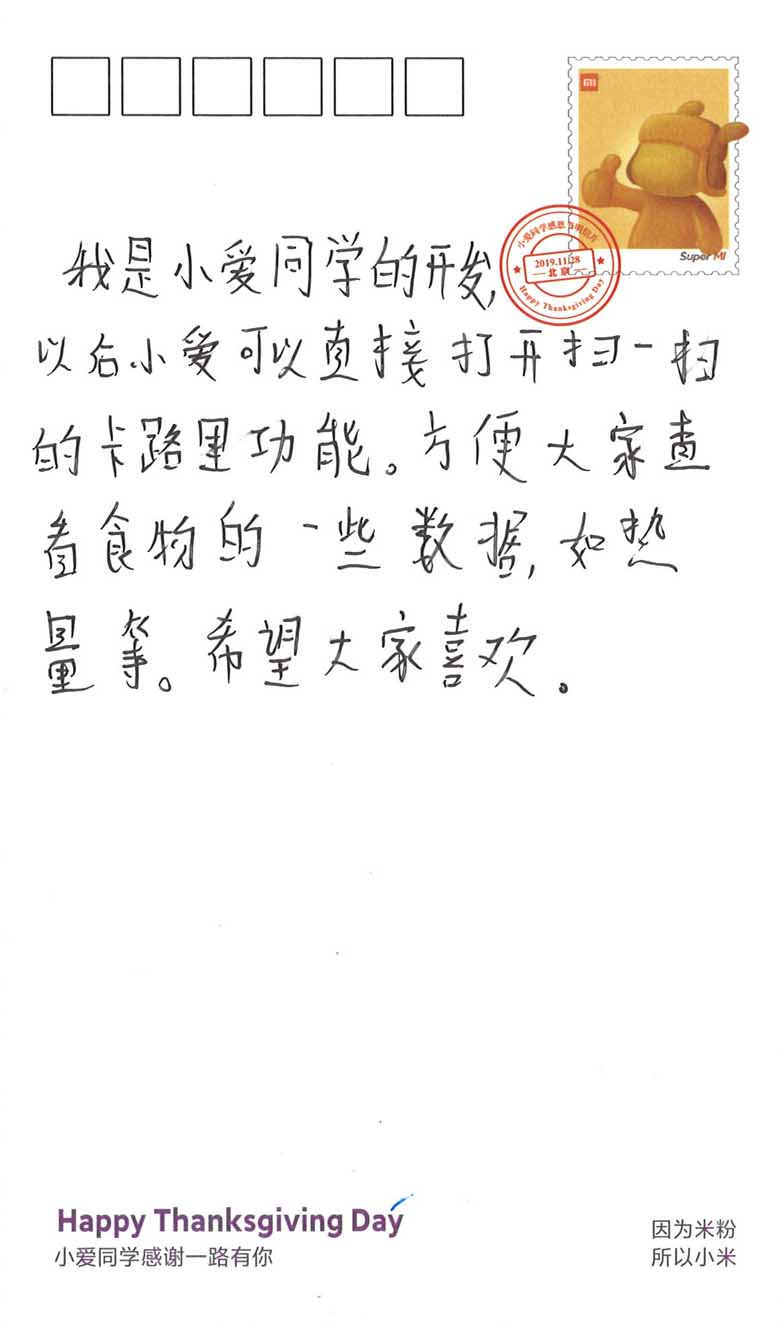 MI
Super MI
小爱同学感恩节明信片
2019.11.28
北京
Happy Thanksgiving Day
我是小爱同学的开发,
以后小爱可以直接打开扫一扫
的卡路里功能。方便大家查
看食物的一些数据,如热
量等。希望大家喜欢。
Happy Thanksgiving Day
小爱同学感谢一路有你
因为米粉
所以小米